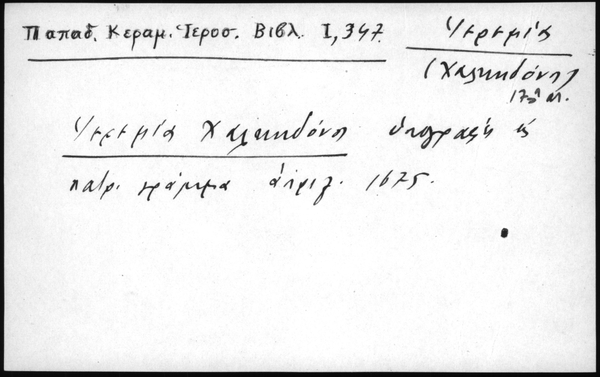 Παπαδ. Κεραμ. Ἱεροσ. Βιβλ. I, 347.
Ἱερεμίας
(Χαλκηδόνος)
17ος αι.
Ἱερεμία Χαλκηδόνος ὑπογραφὴ εἰς
πατρ. γράμμα 1675.